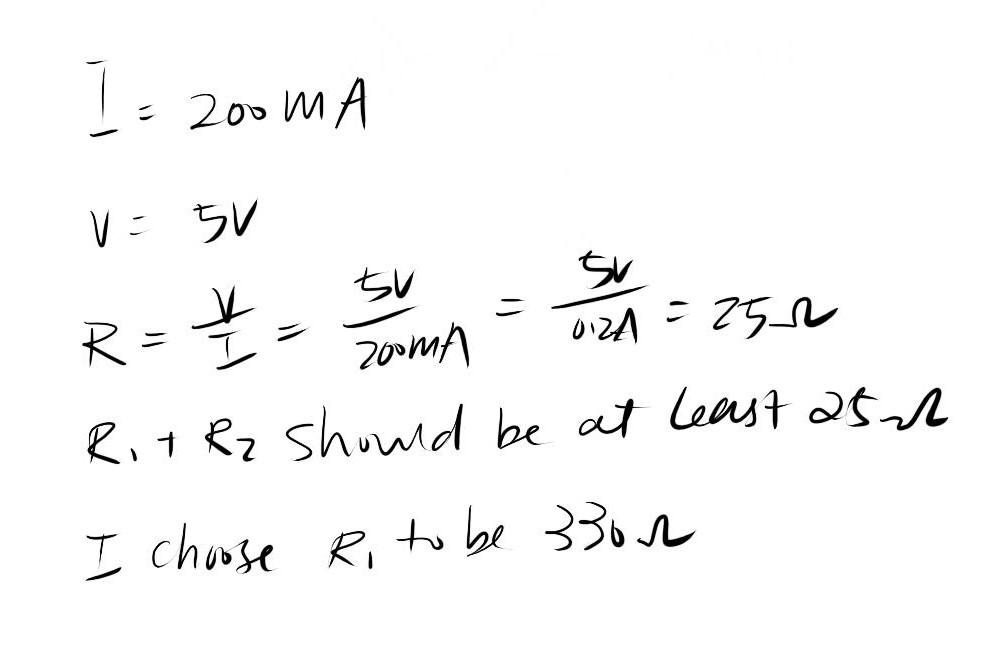 I = 200mA
V = 5V
R = V/I = 5V/200mA = 5V/0.2A = 25Ω
R₁ + R₂ should be at least 25Ω
I choose R₁ to be 330Ω